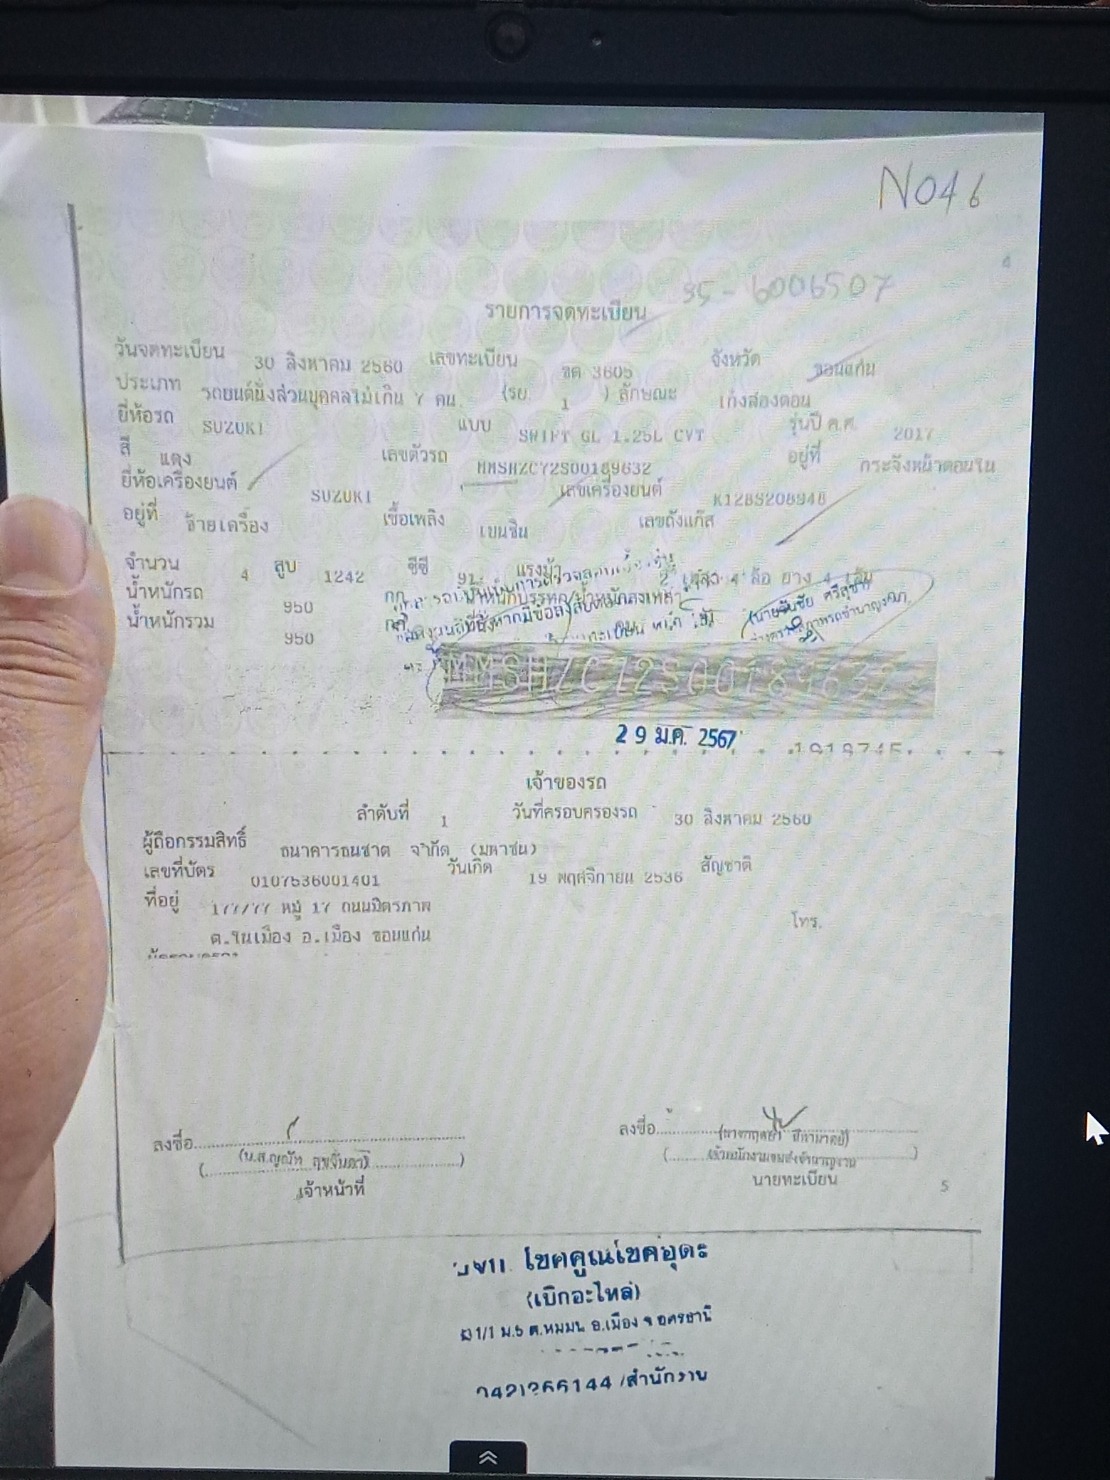 NO46
4
35-6006507
รายการจดทะเบียน
วันจดทะเบียน 30 สิงหาคม 2560 เลขทะเบียน ขต 3605 จังหวัด ขอนแก่น
ประเภท รถยนต์นั่งส่วนบุคคลไม่เกิน 7 คน (รย. 1 ) ลักษณะ เก๋งสองตอน
ยี่ห้อรถ SUZUKI แบบ SWIFT GL 1.25L CVT รุ่นปี ค.ศ. 2017
สี แดง เลขตัวรถ MMSHZC72S00189632 อยู่ที่ กระจังหน้าตอนใน
ยี่ห้อเครื่องยนต์ SUZUKI เลขเครื่องยนต์ K12BS208948
อยู่ที่ ซ้ายเครื่อง เชื้อเพลิง เบนซิน เลขถังแก๊ส
จำนวน 4 สูบ 1242 ซีซี 91 แรงม้า 2 เพลา 4 ล้อ ยาง 4 เส้น
น้ำหนักรถ 950 กก. น้ำหนักบรรทุก/น้ำหนักลงเพลา
น้ำหนักรวม 950 กก.
MMSHZC72S00189632
29 ม.ค. 2567
1919745
เจ้าของรถ
ลำดับที่ 1 วันที่ครอบครองรถ 30 สิงหาคม 2560
ผู้ถือกรรมสิทธิ์ ธนาคารธนชาต จำกัด (มหาชน)
เลขที่บัตร 0107536001401 วันเกิด 19 พฤศจิกายน 2536 สัญชาติ
ที่อยู่ 177/77 หมู่ 17 ถนนมิตรภาพ โทร.
ต.ในเมือง อ.เมือง ขอนแก่น
ลงชื่อ ลงชื่อ
เจ้าหน้าที่ นายทะเบียน
5
โชคคูณโชคอุดะ
(เบิกอะไหล่)
ม.5 ต.หมูม่น อ.เมือง จ.อุดรธานี
/สำนักงาน